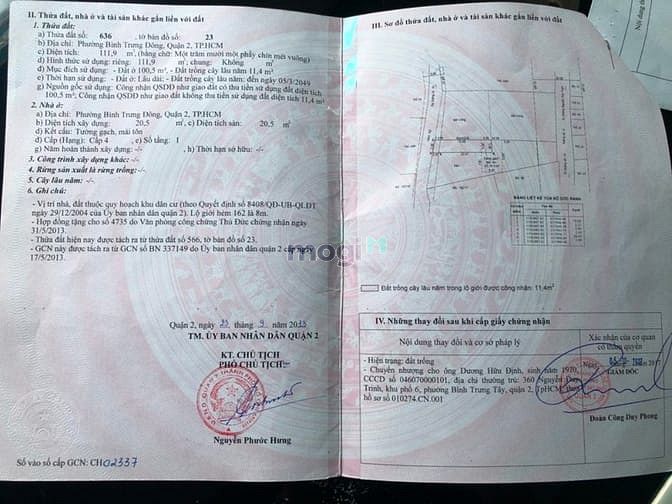 II. Thửa đất, nhà ở và tài sản khác gắn liền với đất
1. Thửa đất:
a) Thửa đất số: 636 , tờ bản đồ số: 23
b) Địa chỉ: Phường Bình Trưng Đông, Quận 2, TP.HCM
c) Diện tích: 111,9 m², (bằng chữ: Một trăm mười một phẩy chín mét vuông)
d) Hình thức sử dụng: riêng: 111,9 m², chung: Không m²
đ) Mục đích sử dụng: - Đất ở 100,5 m² - Đất trồng cây lâu năm 11,4 m²
e) Thời hạn sử dụng: - Đất ở: Lâu dài; - Đất trồng cây lâu năm: đến ngày 05/3/2049
g) Nguồn gốc sử dụng: Công nhận QSDĐ như giao đất có thu tiền sử dụng đất diện tích
100,5 m²; Công nhận QSDĐ như giao đất không thu tiền sử dụng đất diện tích 11,4 m²
2. Nhà ở:
a) Địa chỉ: Phường Bình Trưng Đông, Quận 2, TP.HCM
b) Diện tích xây dựng: 20,5 m² c) Diện tích sàn: 20,5 m²
d) Kết cấu: Tường gạch, mái tôn
đ) Cấp (Hạng): Cấp 4 , e) Số tầng: 1
g) Năm hoàn thành xây dựng: -/- , h) Thời hạn sở hữu: -/-
3. Công trình xây dựng khác: -/-
4. Rừng sản xuất là rừng trồng: -/-
5. Cây lâu năm: -/-
6. Ghi chú:
- Vị trí nhà, đất thuộc quy hoạch khu dân cư (theo Quyết định số 8408/QĐ-UB-QLĐT
ngày 29/12/2004 của Ủy ban nhân dân quận 2). Lộ giới hẻm 162 là 8m.
- Hợp đồng tặng cho số 4735 do Văn phòng công chứng Thủ Đức chứng nhận ngày
31/5/2013.
- Thửa đất hiện nay được tách ra từ thửa đất số 566, tờ bản đồ số 23.
- GCN này được tách ra từ GCN số BN 337149 do Ủy ban nhân dân quận 2 cấp ngày
17/5/2013.
Quận 2, ngày 23 tháng 9 năm 2013
TM. ỦY BAN NHÂN DÂN QUẬN 2
KT. CHỦ TỊCH
PHÓ CHỦ TỊCH
Nguyễn Phước Hưng
Số vào sổ cấp GCN: CH02337
mogi
III. Sơ đồ thửa đất, nhà ở và tài sản khác gắn liền với đất
BẢNG LIỆT KÊ TỌA ĐỘ GÓC RANH
Đất trồng cây lâu năm trong lộ giới được công nhận: 11,4m²
IV. Những thay đổi sau khi cấp giấy chứng nhận
Nội dung thay đổi và cơ sở pháp lý
Xác nhận của cơ quan
có thẩm quyền
- Hiện trạng: đất trống
- Chuyển nhượng cho ông Dương Hữu Định, sinh năm 1970,
CCCD số 046070000101, địa chỉ thường trú: 360 Nguyễn Duy
Trinh, khu phố 6, phường Bình Trưng Tây, quận 2, TpHCM; theo
hồ sơ số 010274.CN.001
Ngày
GIÁM ĐỐC
Đoàn Công Duy Phong